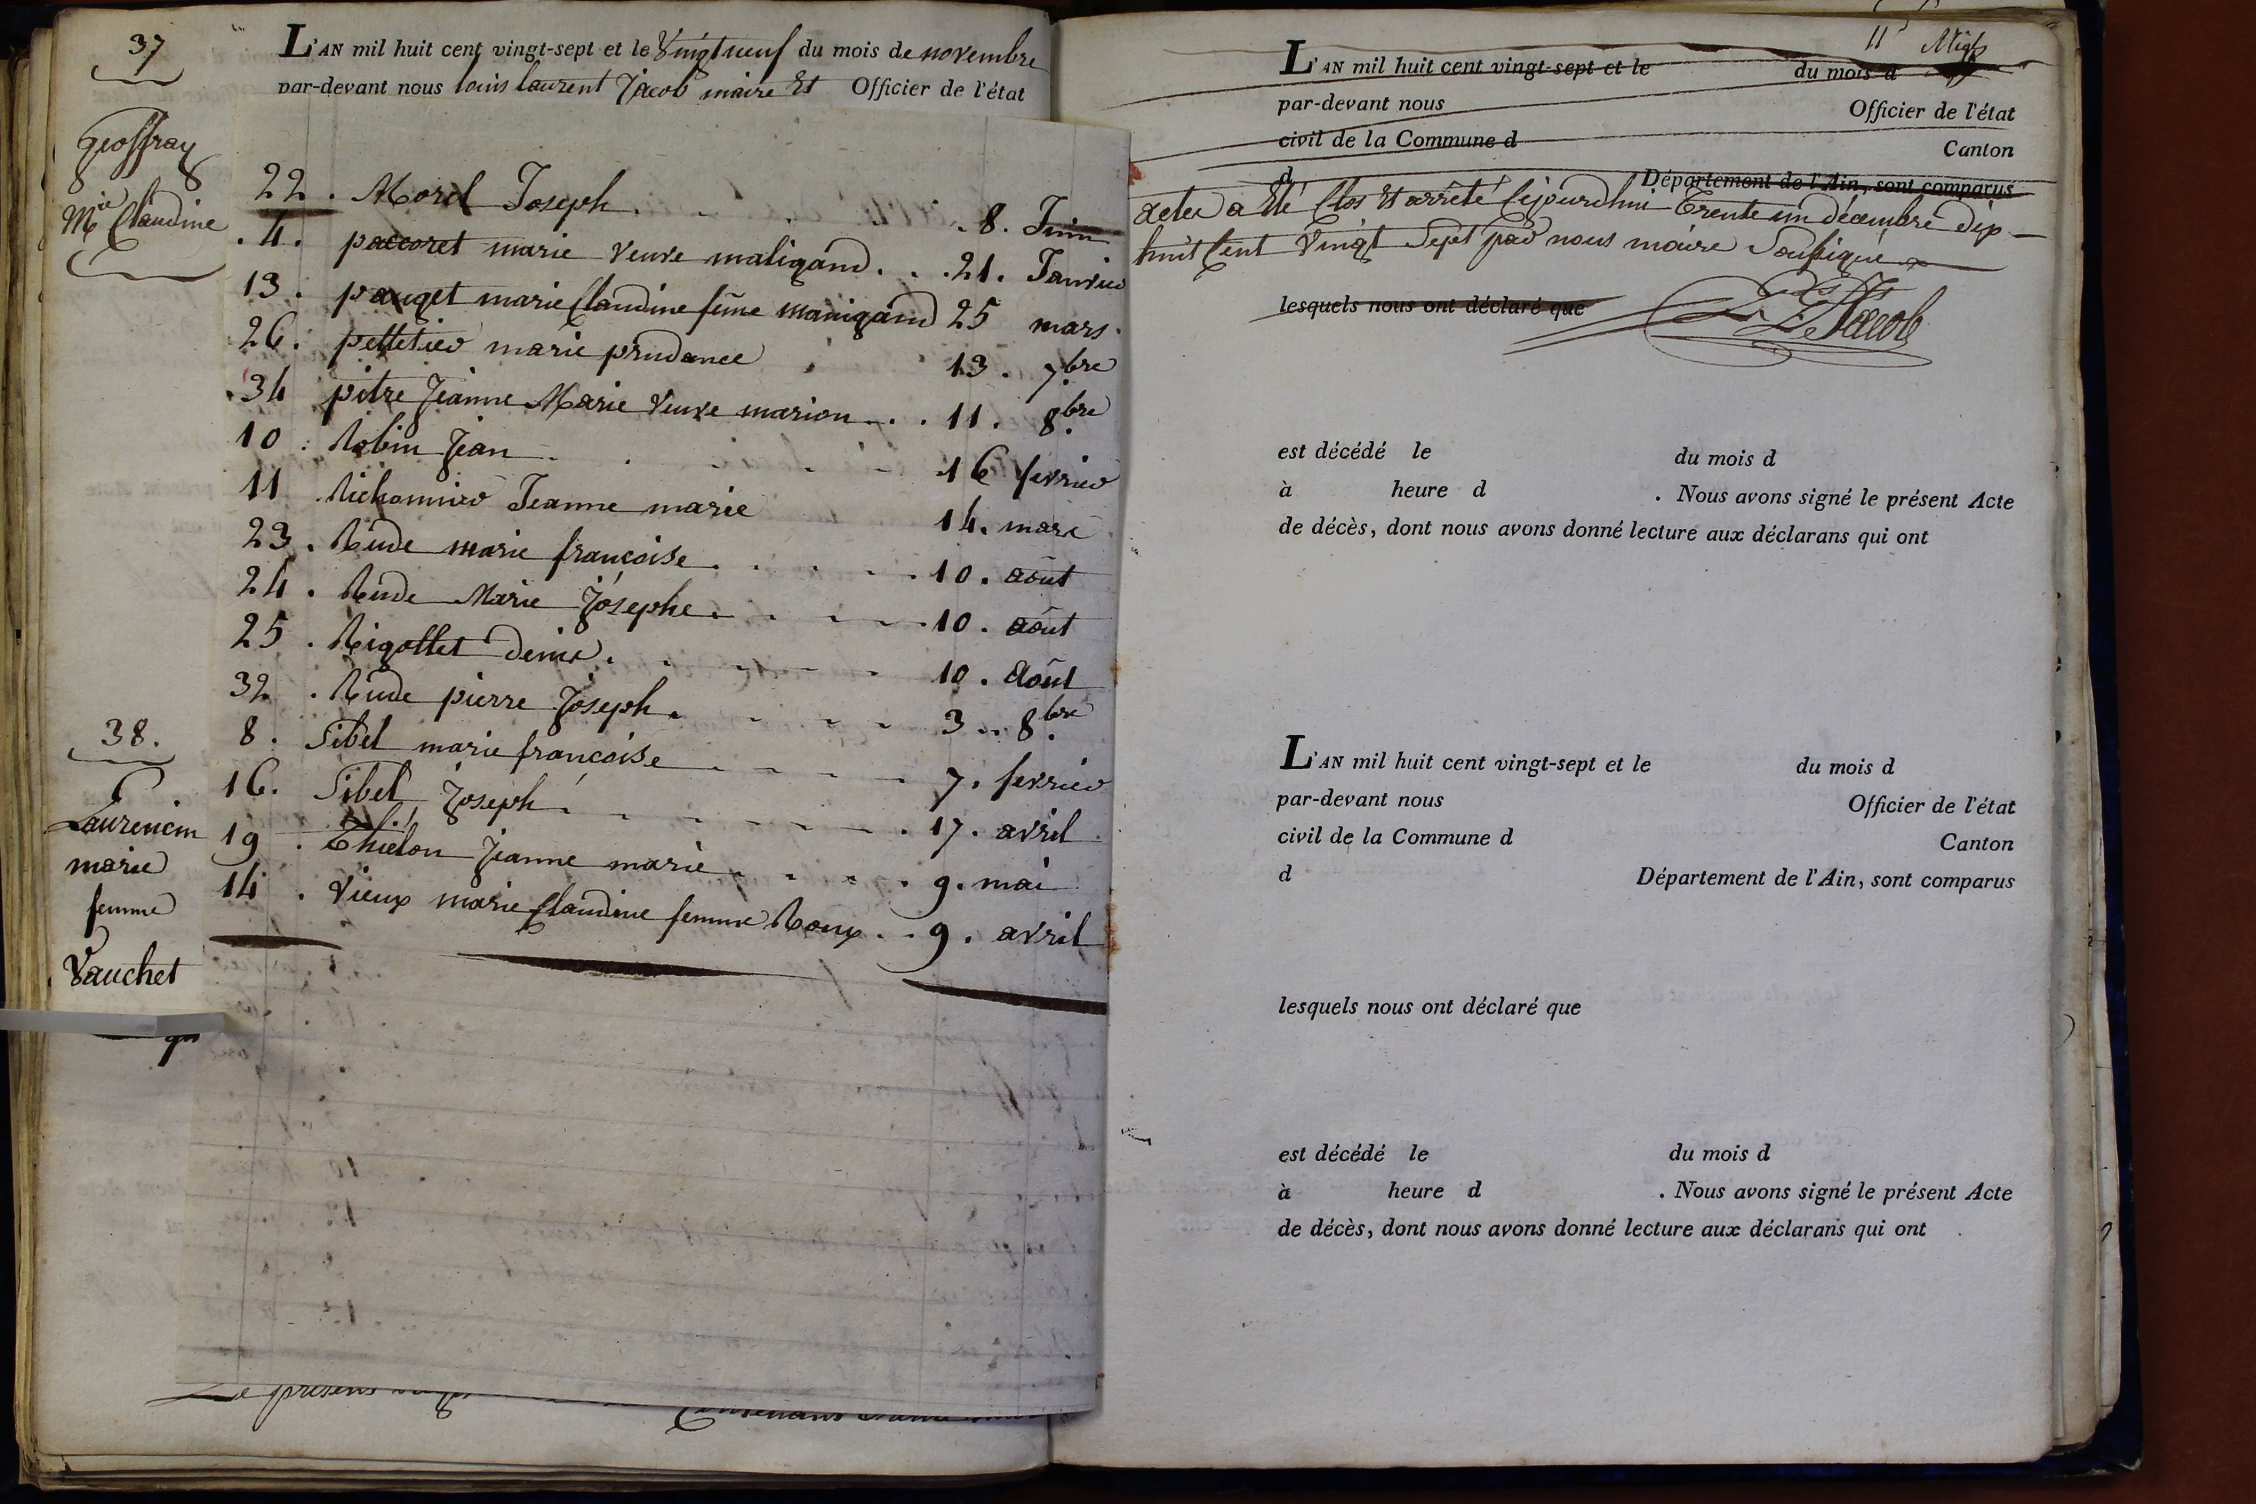 37
L'AN mil huit cent vingt-sept et le Vingt neuf du mois de novembre
par-devant nous louis laurent Jacob maire Et Officier de l'état
Geoffray
Mie Claudine
22. Morel Joseph. 8. Juin
4. paccoret marie veuve maligand. 21. Janvier
13. pauget marie Claudine feme manigand 25 mars.
26. pelletier marie prudance 13. 7bre
34 pitre Jeanne Marie veuve marion. 11. 8bre
10. Robin Jean 16 fevrier
11 Jeanne marie 14. mars
23. Rude marie francoise. 10. août
24. Rude Marie Josephe. 10. août
25. Rigollet denis. 10. Août
32. Rude pierre Joseph. 3. 8bre
8. Sibel marie francoise 7. fevrier
16. Sibel Joseph. 17. avril
19. Jeanne marie. 9. mai
14. Vieux marie Claudine femme Roux. 9. avril
38.
Laurencin
marie
femme
Vauchet
L'AN mil huit cent vingt-sept et le du mois d
par-devant nous Officier de l'état
civil de la Commune d Canton
d Département de l'Ain, sont comparus
actes a Eté Clos Et arrêté Cejourdhui Trente un décembre dix
huit Cent Vingt Sept par nous maire Soussigné
lesquels nous ont déclaré que
Jacob
est décédé le du mois d
à heure d . Nous avons signé le présent Acte
de décès, dont nous avons donné lecture aux déclarans qui ont
L'AN mil huit cent vingt-sept et le du mois d
par-devant nous Officier de l'état
civil de la Commune d Canton
d Département de l'Ain, sont comparus
lesquels nous ont déclaré que
est décédé le du mois d
à heure d . Nous avons signé le présent Acte
de décès, dont nous avons donné lecture aux déclarans qui ont